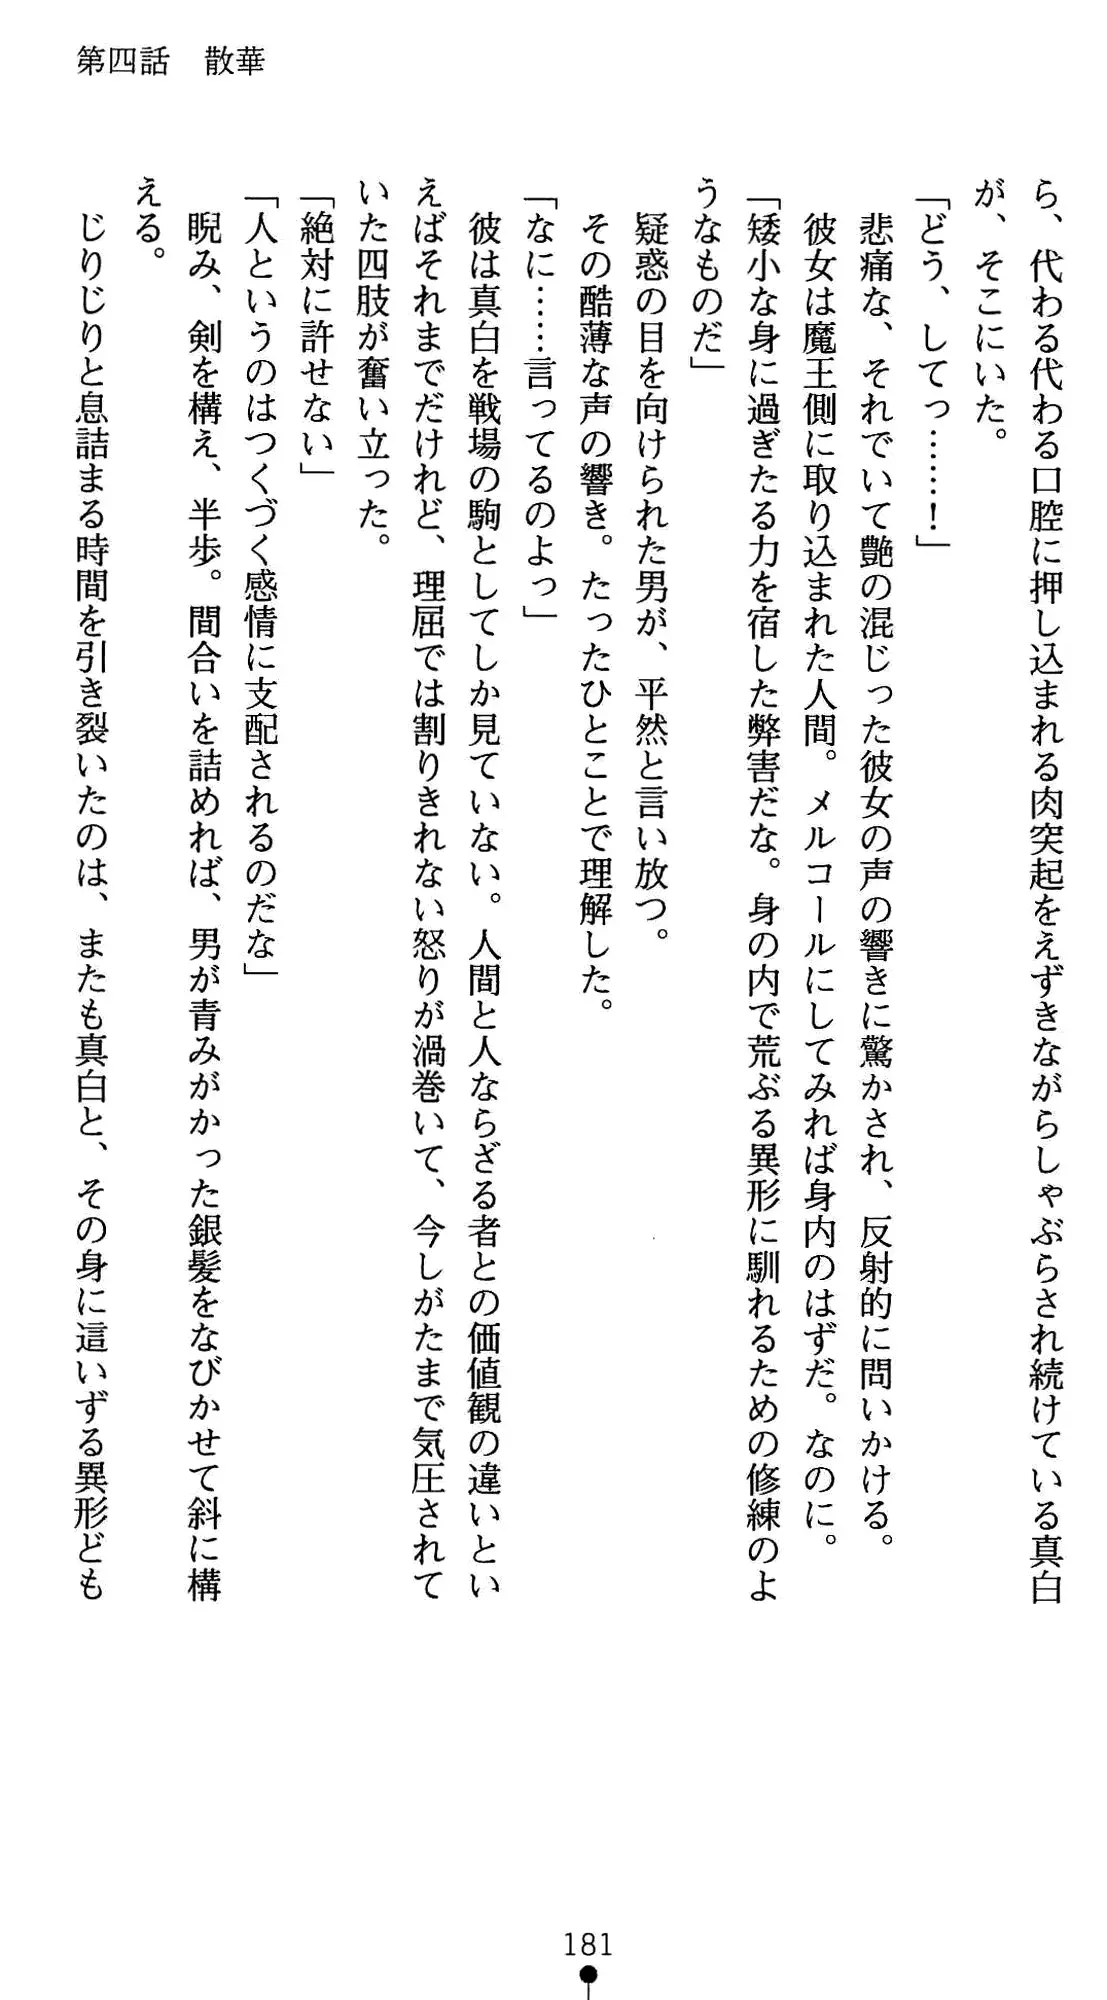 第四話　散華
ら、代わる代わる口腔に押し込まれる肉突起をえずきながらしゃぶらされ続けている真白
が、そこにいた。
「どう、してっ……！」
　悲痛な、それでいて艶の混じった彼女の声の響きに驚かされ、反射的に問いかける。
　彼女は魔王側に取り込まれた人間。メルコールにしてみれば身内のはずだ。なのに。
「矮小な身に過ぎたる力を宿した弊害だな。身の内で荒ぶる異形に馴れるための修練のよ
うなものだ」
　疑惑の目を向けられた男が、平然と言い放つ。
　その酷薄な声の響き。たったひとことで理解した。
「なに……言ってるのよっ」
　彼は真白を戦場の駒としてしか見ていない。人間と人ならざる者との価値観の違いとい
えばそれまでだけれど、理屈では割りきれない怒りが渦巻いて、今しがたまで気圧されて
いた四肢が奮い立った。
「絶対に許せない」
「人というのはつくづく感情に支配されるのだな」
　睨み、剣を構え、半歩。間合いを詰めれば、男が青みがかった銀髪をなびかせて斜に構
える。
　じりじりと息詰まる時間を引き裂いたのは、またも真白と、その身に這いずる異形ども
181